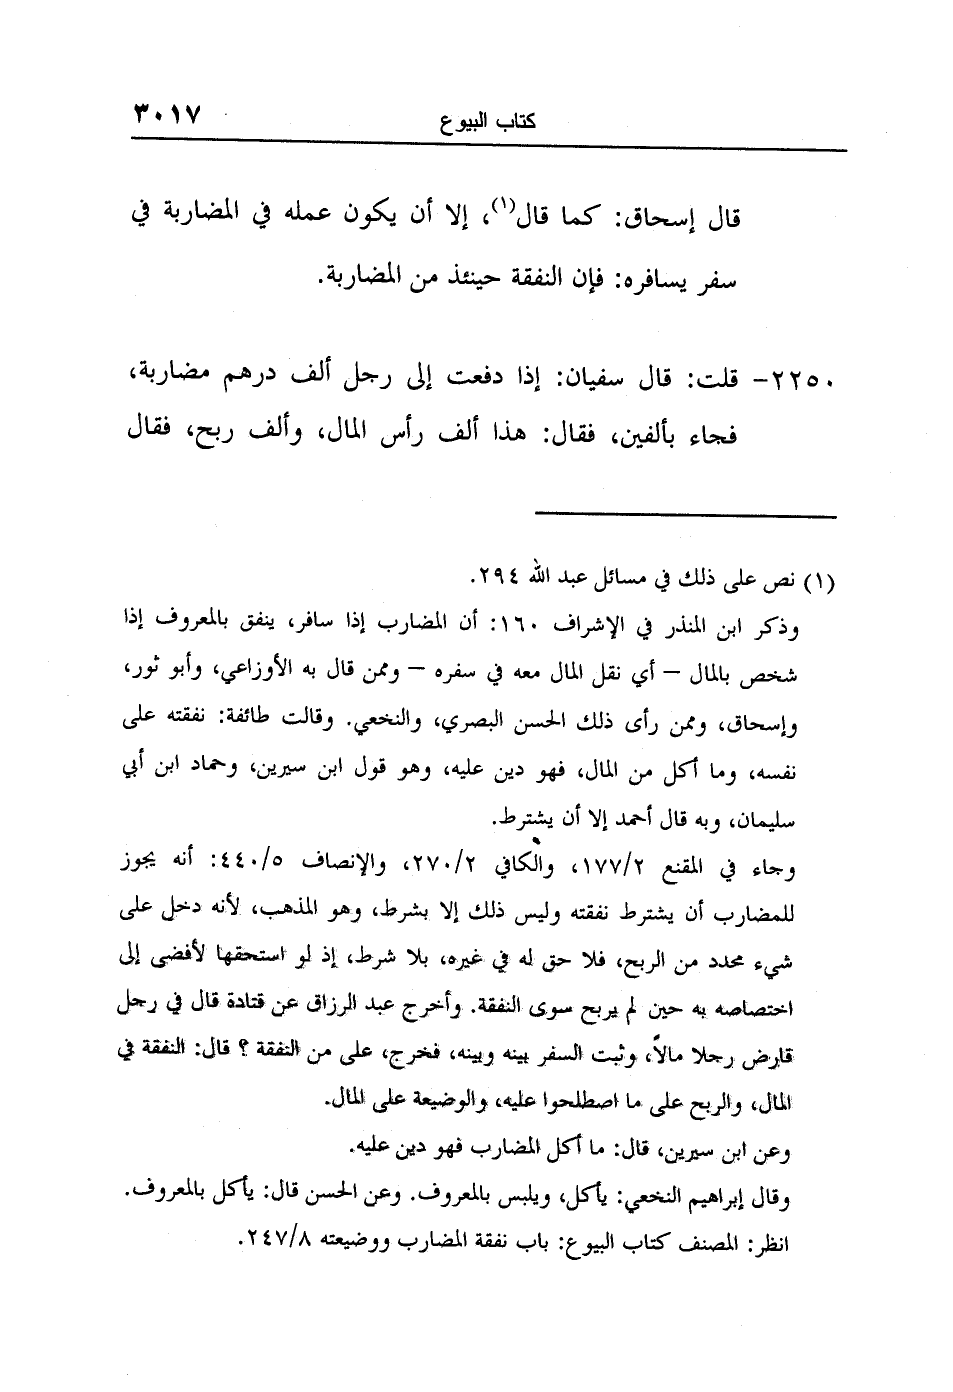 كتاب البيوع ٣٠١٧
قال إسحاق: كما قال(١)، إلا أن يكون عمله في المضاربة في
سفر يسافره: فإن النفقة حينئذ من المضاربة.
٢٢٥٠- قلت: قال سفيان: إذا دفعت إلى رجل ألف درهم مضاربة،
فجاء بألفين، فقال: هذا ألف رأس المال، وألف ربح، فقال
(١) نص على ذلك في مسائل عبد الله ٢٩٤.
وذكر ابن المنذر في الإشراف ١٦٠: أن المضارب إذا سافر، ينفق بالمعروف إذا
شخص بالمال – أي نقل المال معه في سفره – وممن قال به الأوزاعي، وأبو ثور،
وإسحاق، وممن رأى ذلك الحسن البصري، والنخعي. وقالت طائفة: نفقته على
نفسه، وما أكل من المال، فهو دين عليه، وهو قول ابن سيرين، وحماد ابن أبي
سليمان، وبه قال أحمد إلا أن يشترط.
وجاء في المقنع ١٧٧/٢، والكافي ٢٧٠/٢، والإنصاف ٤٤٠/٥: أنه يجوز
للمضارب أن يشترط نفقته وليس ذلك إلا بشرط، وهو المذهب، لأنه دخل على
شيء محدد من الربح، فلا حق له في غيره، بلا شرط، إذ لو استحقها لأفضى إلى
اختصاصه به حين لم يربح سوى النفقة. وأخرج عبد الرزاق عن قتادة قال في رجل
قارض رجلا مالاً، وثبت السفر بينه وبينه، فخرج، على من النفقة ؟ قال: النفقة في
المال، والربح على ما اصطلحوا عليه، والوضيعة على المال.
وعن ابن سيرين، قال: ما أكل المضارب فهو دين عليه.
وقال إبراهيم النخعي: يأكل، ويلبس بالمعروف. وعن الحسن قال: يأكل بالمعروف.
انظر: المصنف كتاب البيوع: باب نفقة المضارب ووضيعته ٢٤٧/٨.